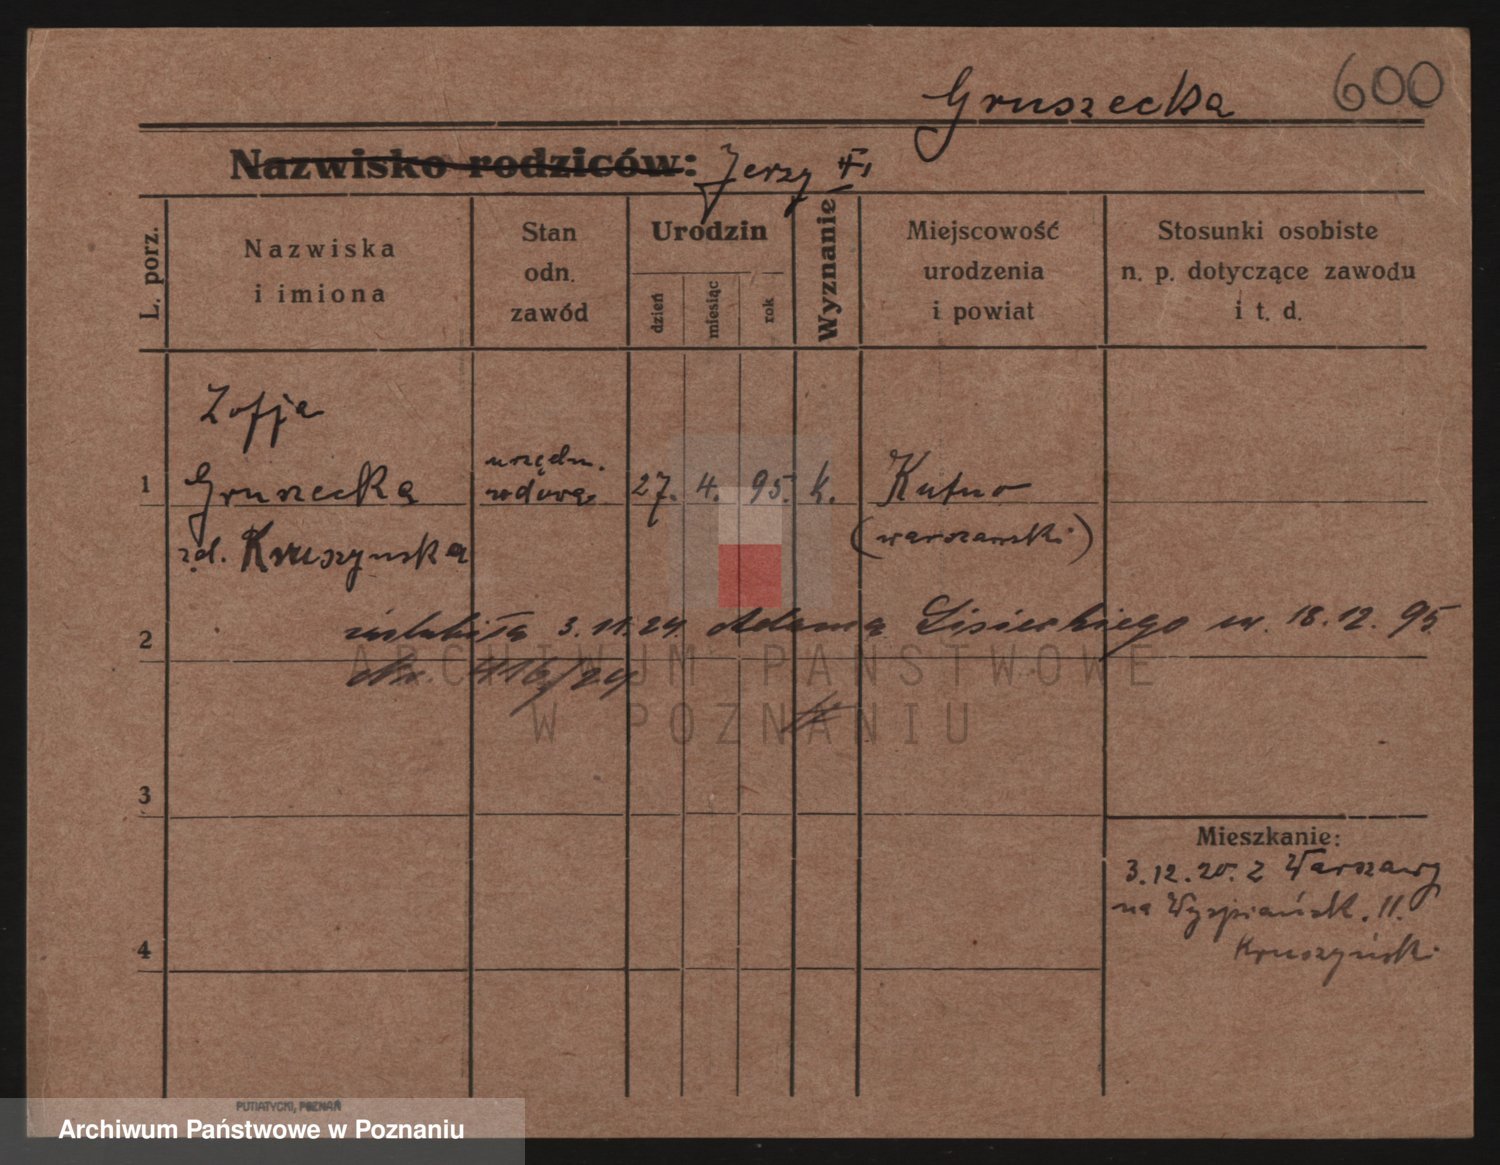 Gruszecka 600
Nazwisko rodziców: Jerzy
L. porz.
Nazwiska
i imiona
Stan
odn.
zawód
Urodzin
dzień
miesiąc
rok
Wyznanie
Miejscowość
urodzenia
i powiat
Stosunki osobiste
n. p. dotyczące zawodu
i t. d.
Zofja
1 Gruszecka urzędn. wdowa 27. 4. 95. k. Kutno
zd. Kruszynska (warszawski)
2 zaślubiła 3.11.24 Adama Lisieckiego ur. 18.12.95
416/24
ARCHIWUM PAŃSTWOWE
W POZNANIU
3
Mieszkanie:
3.12.20. z Warszawy
na Wyspiańsk. 11.
Kruszyński
4
PUTIATYCKI, POZNAŃ
Archiwum Państwowe w Poznaniu